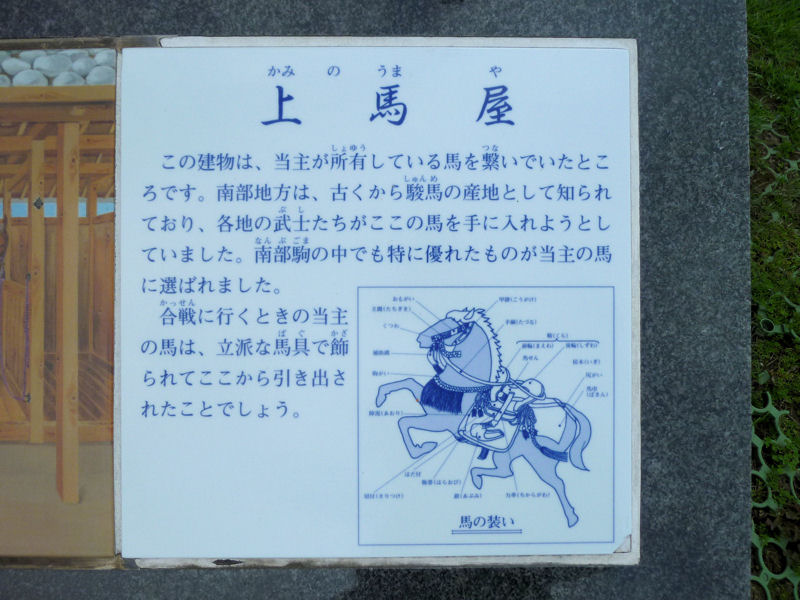 かみ の うま や
上馬屋
この建物は、当主が所有している馬を繋いでいたとこ
ろです。南部地方は、古くから駿馬の産地として知られ
ており、各地の武士たちがここの馬を手に入れようとし
ていました。南部駒の中でも特に優れたものが当主の馬
に選ばれました。
合戦に行くときの当主
の馬は、立派な馬具で飾
られてここから引き出さ
れたことでしょう。
おもがい
立聞(たちぎき)
くつわ
胸がい
障泥(あおり)
はだ付
切付(きりつけ)
腹帯(はらおび)
鐙(あぶみ)
力革(ちからがわ)
甲掛(こうがけ)
手綱(たづな)
鞍(くら)
前輪(まえわ)
後輪(しずわ)
馬せん
居木(いぎ)
尻がい
馬氈
(ばせん)
馬の装い